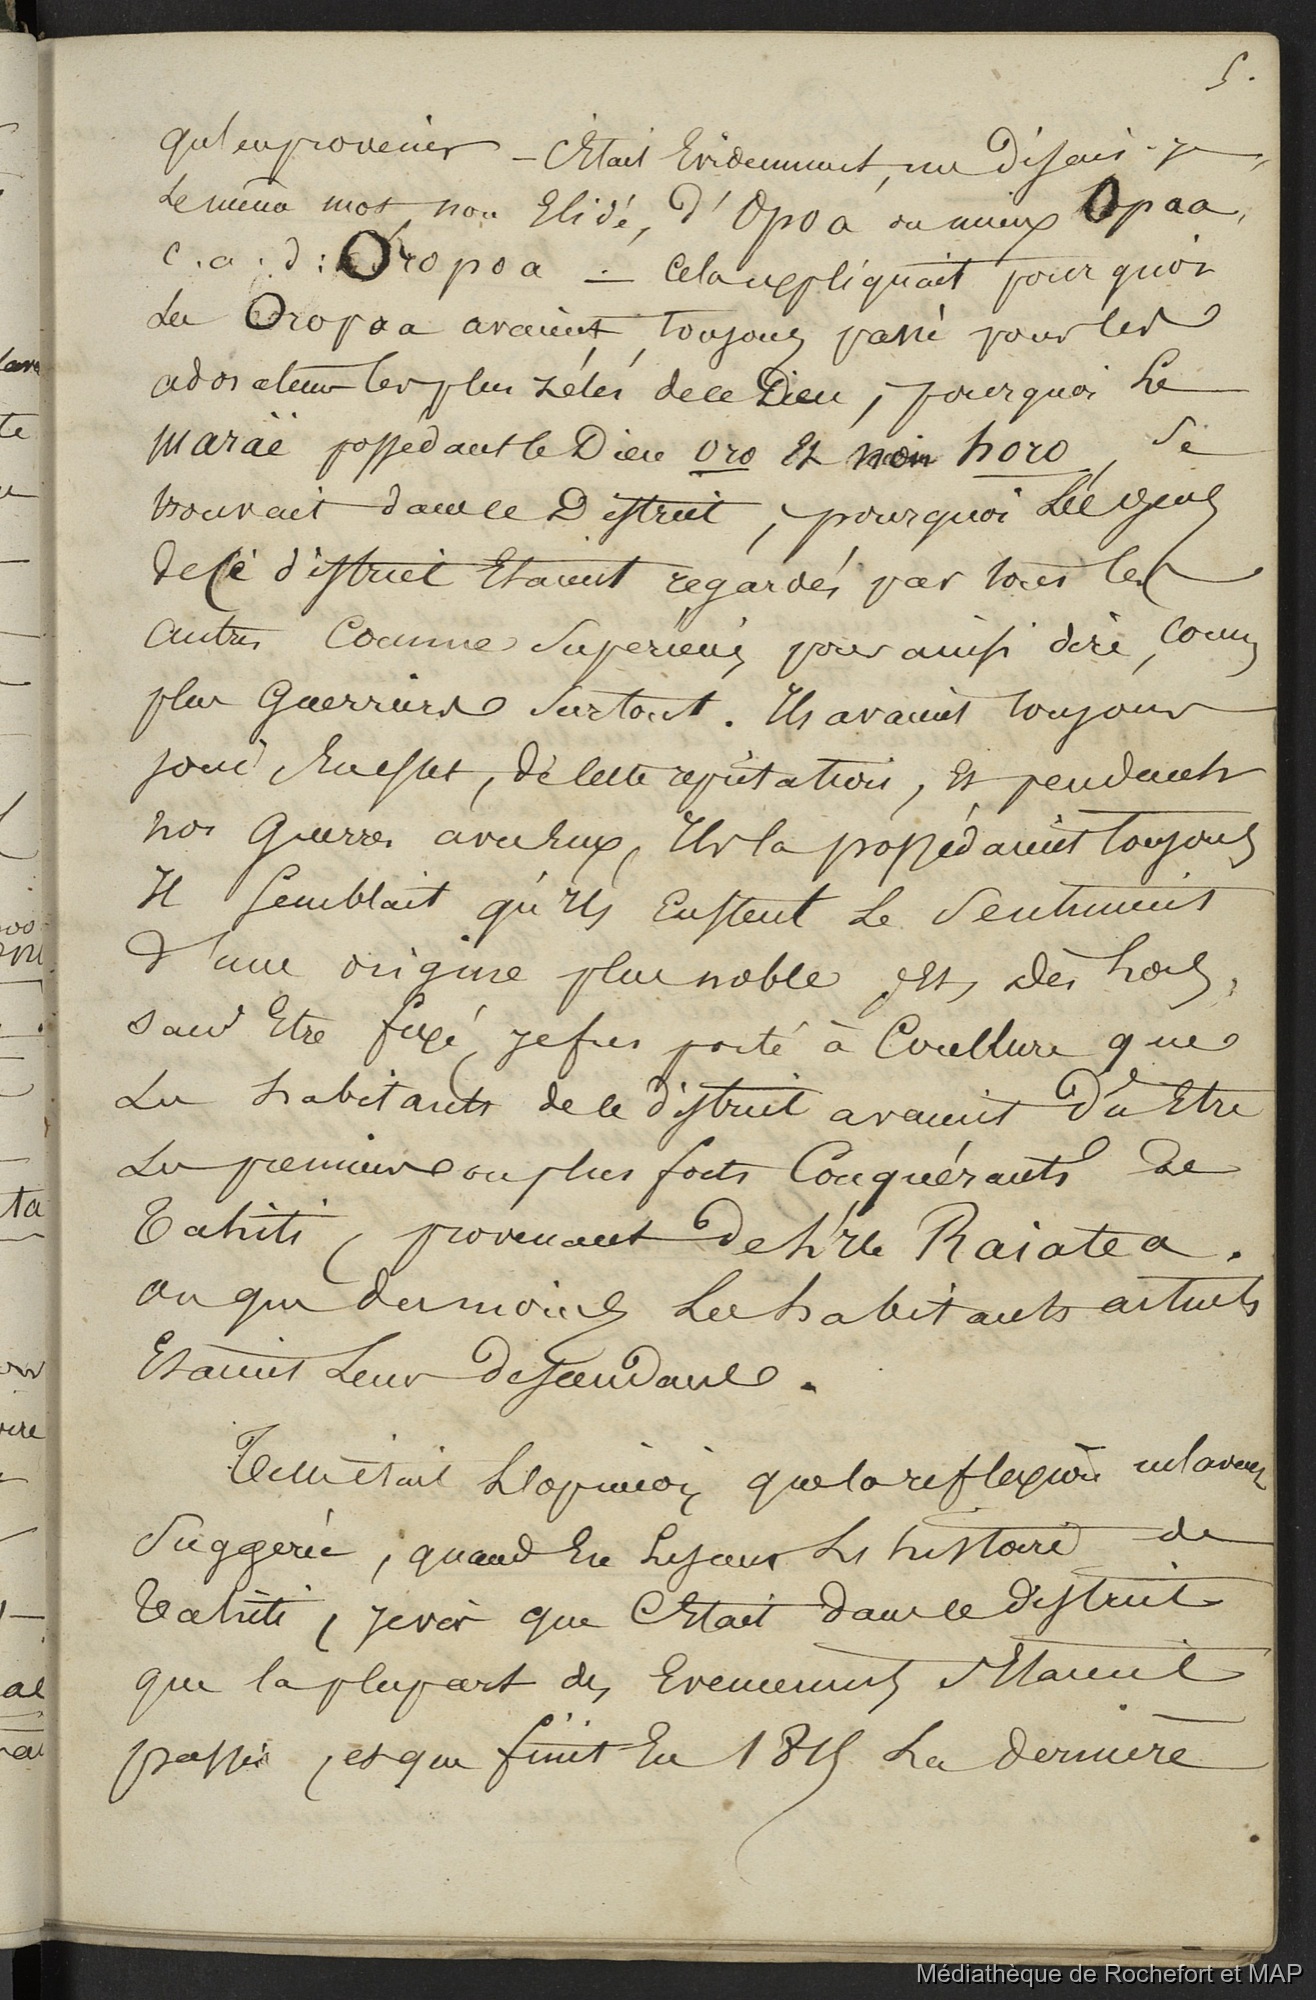 5.
qu'en provenir – C'était Evidemment, me disais-je,
le même mot, non Elidé, d'Opoa ou mieux Opaa,
c.a.d: Oropoa — cela expliquait pourquoi
les Oropaa avaient toujours passé pour les
adorateurs les plus zélés de ce Dieu, pourquoi le
maraë possédant le Dieu Oro et non horo, se
trouvait dans ce District, pourquoi les gens
de ce district Etaient regardés par tous les
autres Comme Superieurs pour ainsi dire, comme
plus Guerriers surtout. Ils avaient toujours
joui En effet, de cette réputation, et pendant
nos Guerres avec Eux, Ils la possédaient toujours
Il Semblait qu'ils Eussent le Sentiment
d'une origine plus noble et, dès lors,
sans Etre fixé, je fus porté à Conclure que
les habitants de ce district avaient dû Etre
les premiers ou plus forts Conquérants de
Tahiti, provenant de l'Ile Raiatea.
ou que du moins les habitants actuels
Etaient Leurs descendants.
Telle était l'opinion que la reflexion m'avait
Suggerée, quand En lisant l'histoire de
Tahiti, je vis que C'Etait dans ce district
que la plupart des Evenements s'Etaient
passés, et que finit En 1815 la dernière
Médiathèque de Rochefort et MAP